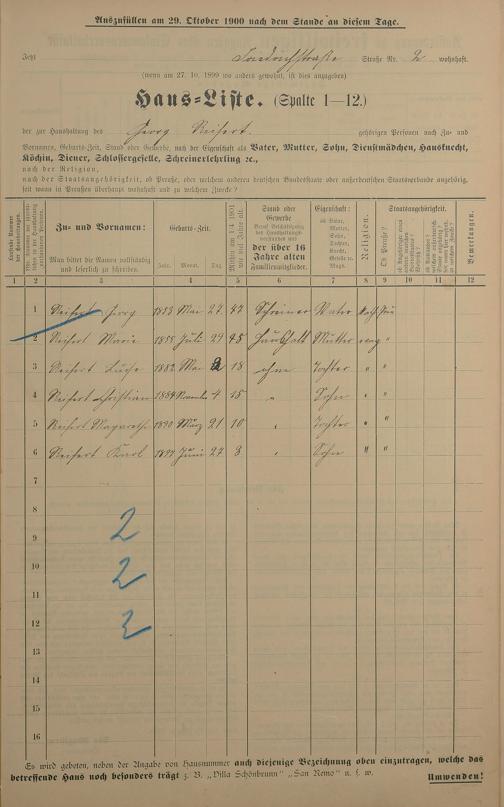 Auszufüllen am 29. Oktober 1900 nach dem Stande an diesem Tage.
Jetzt Friedrichstraße Straße Nr. 2 wohnhaft.
(wenn am 27. 10. 1899 wo anders gewohnt, ist dies anzugeben)
Haus-Liste. (Spalte 1—12.)
der zur Haushaltung des Georg Seifert. gehörigen Personen nach Zu- und
Vornamen, Geburts-Zeit, Stand oder Gewerbe, nach der Eigenschaft als Vater, Mutter, Sohn, Dienstmädchen, Hausknecht,
Köchin, Diener, Schlossergeselle, Schreinerlehrling ꝛc.,
nach der Religion,
nach der Staatsangehörigkeit, ob Preuße, oder welchem anderen deutschen Bundesstaate oder außerdeutschen Staatsverbande angehörig,
seit wann in Preußen überhaupt wohnhaft und zu welchem Zwecke?
Laufende Nummer der Haushaltungen.
Zu- und Vornamen:
Man bittet die Namen vollständig und leserlich zu schreiben.
Geburts-Zeit.
Jahr. Monat. Tag.
Mithin am 1./4. 1901 wie viel Jahre alt.
Stand oder Gewerbe
der über 16 Jahre alten Familienmitglieder.
Eigenschaft:
ob Vater, Mutter, Sohn, Tochter, Knecht, Geselle u. Magd.
Religion.
Staatsangehörigkeit.
Ob Preuße?
Bemerkungen.
1 2 3 4 5 6 7 8 9 10 11 12
1 Seifert Georg 1853 Mai 27 47 Schreiner Vater kath.
2 Seifert Marie 1855 Juli 29 45 Haushalt Mutter evang "
3 Seifert 1882 Mai 18 ohne Tochter " "
4 Seifert Christian 1884 4 15 " Sohn " "
5 Seifert Margareth 1890 März 21 10 " Tochter " "
6 Seifert Karl 1897 Juni 27 3 " Sohn " "
7
8
9 2
10
11 2
12
13 2
14
15
16
Es wird gebeten, neben der Angabe von Hausnummer auch diejenige Bezeichnung oben einzutragen, welche das
betreffende Haus noch besonders trägt z. B. „Villa Schönbrunn" „San Remo" u. s. w. Umwenden!